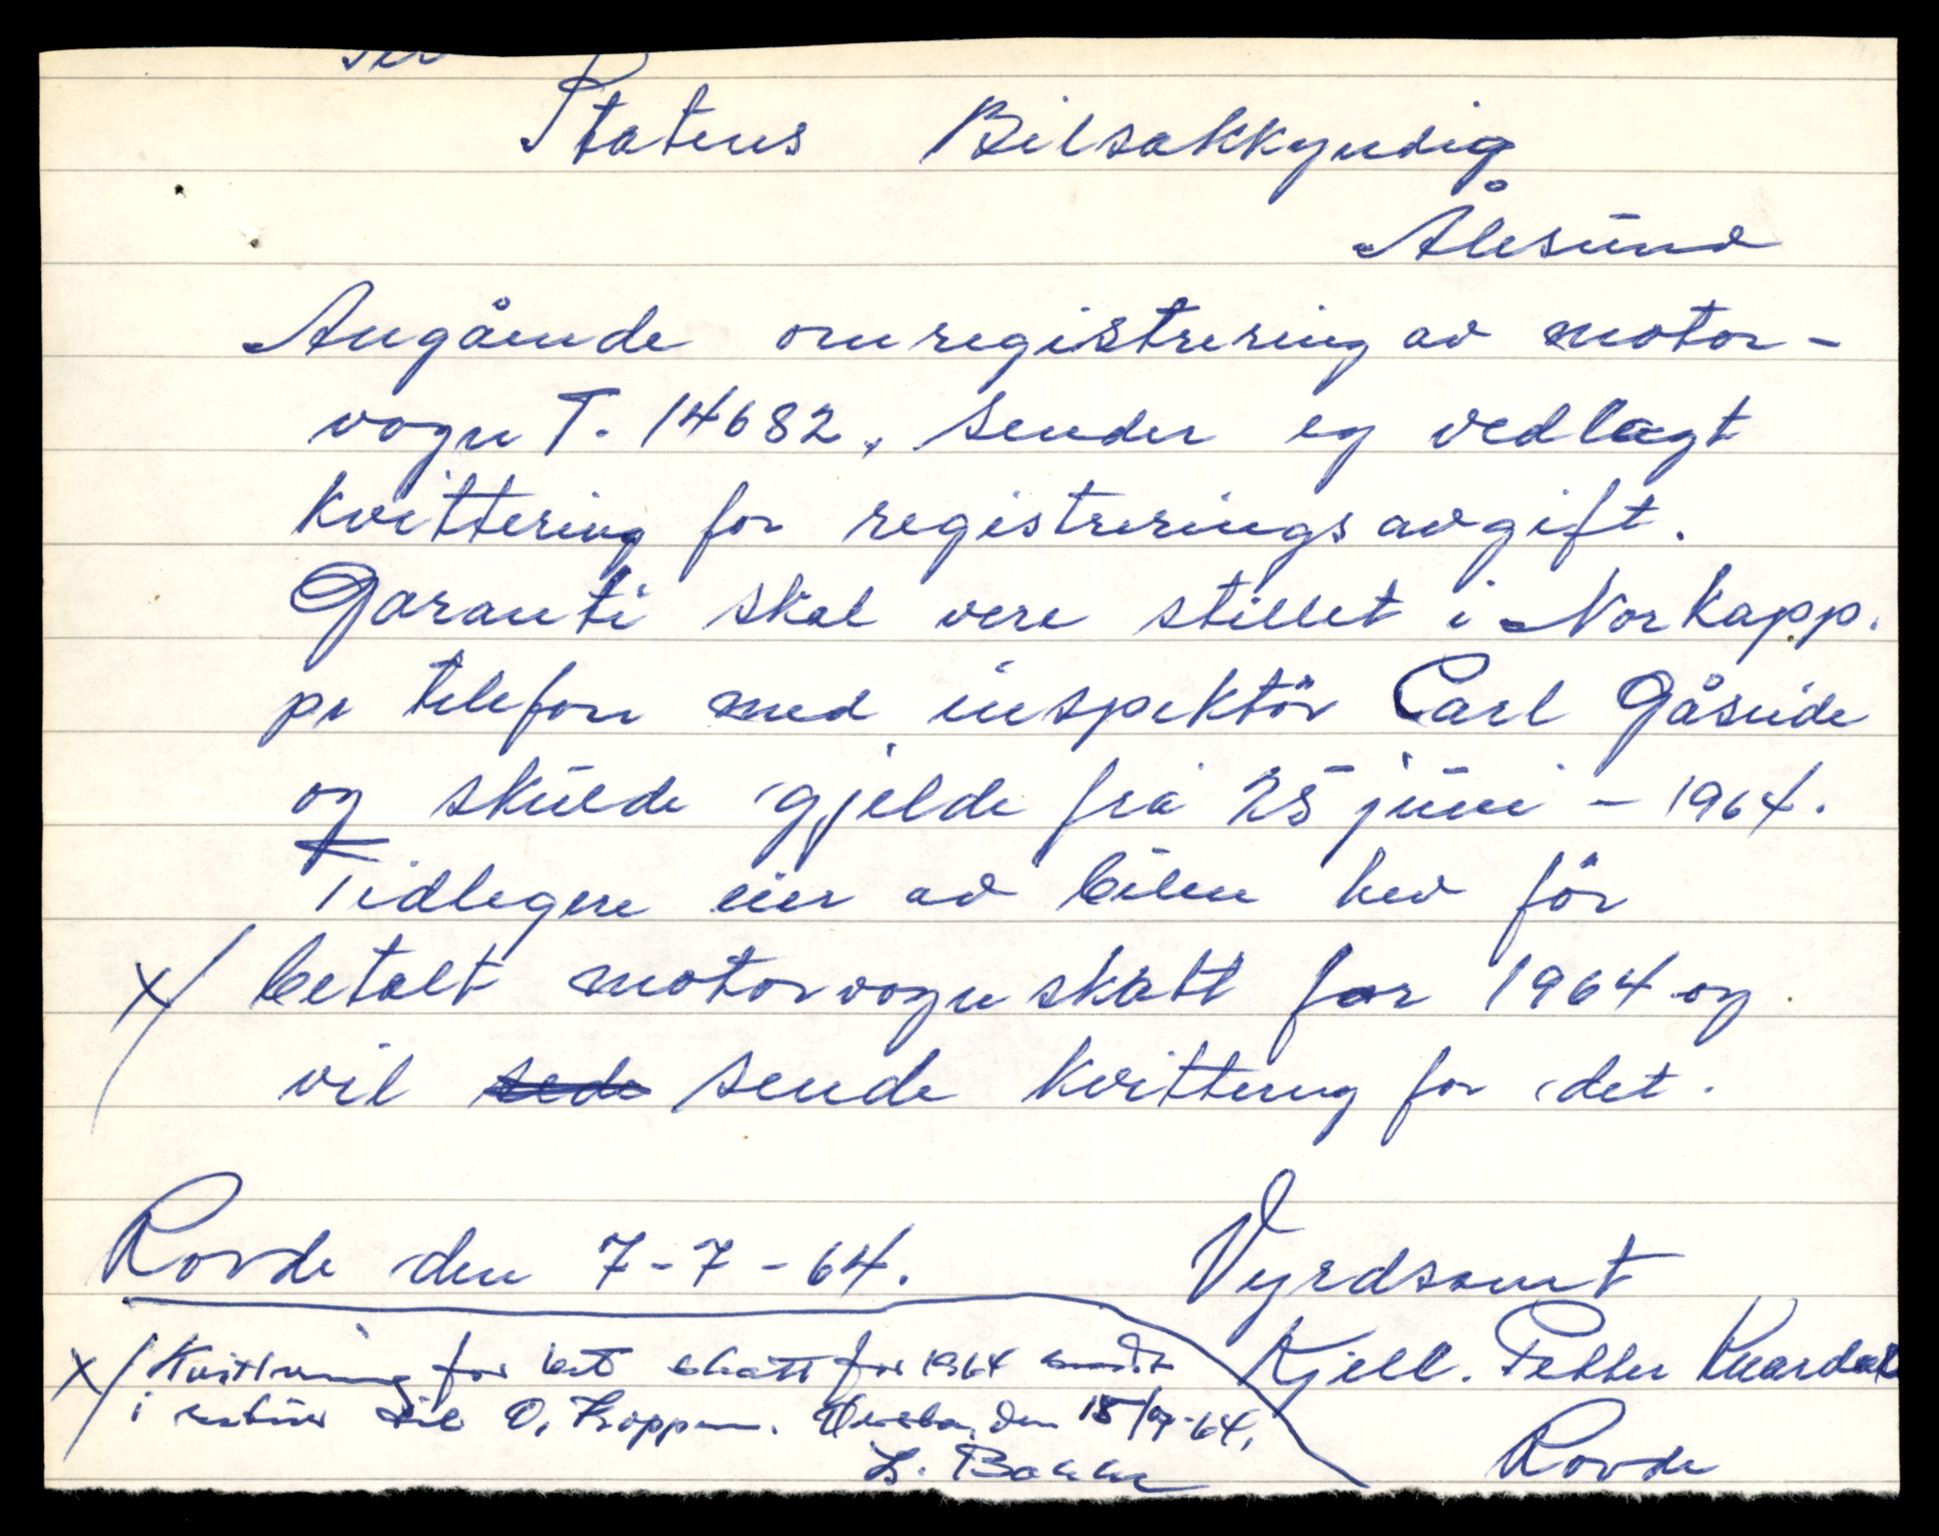 Til
Statens Bilsakkyndig
Ålesund
Angående omregistrering av motor-
vogn T. 14682, sender eg vedlagt
kvittering for registreringsavgift.
Garanti skal vere stillet i Norkapp.
pr telefon med inspektör Carl Gåseide
og skulde gjelde frå 25 juni - 1964.
Tidlegere eier av bilen hev för
x/ betalt motorvognskatt for 1964 og
vil sende kvittering for det.
Rovde den 7-7-64. Vyrdsamt
x/ Kvittering for bet skatt for 1964 sendt Kjell. Petter
i retur til O. den 15/9-64.
Rovde